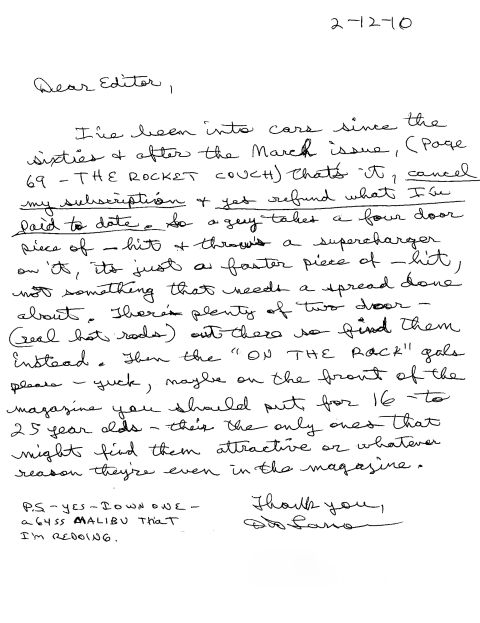 2-12-10
Dear Editor,
I've been into cars since the
sixties & after the March issue, (Page
69 - THE ROCKET COUCH) that's it, cancel
my subscription & yes refund what I've
paid to date. So a guy takes a four door
piece of -hit & throws a supercharger
on it, its just a faster piece of -hit,
not something that needs a spread done
about. There's plenty of two door -
(real hot rods) out there so find them
instead. Then the "ON THE RACK" gals
please - yuck, maybe on the front of the
magazine you should put for 16 - to
25 year olds - theis the only ones that
might find them attractive or whatever
reason they're even in the magazine.
Thank you,
P.S - YES - I OWN ONE -
a 64 SS MALIBU THAT
I'M REDOING.